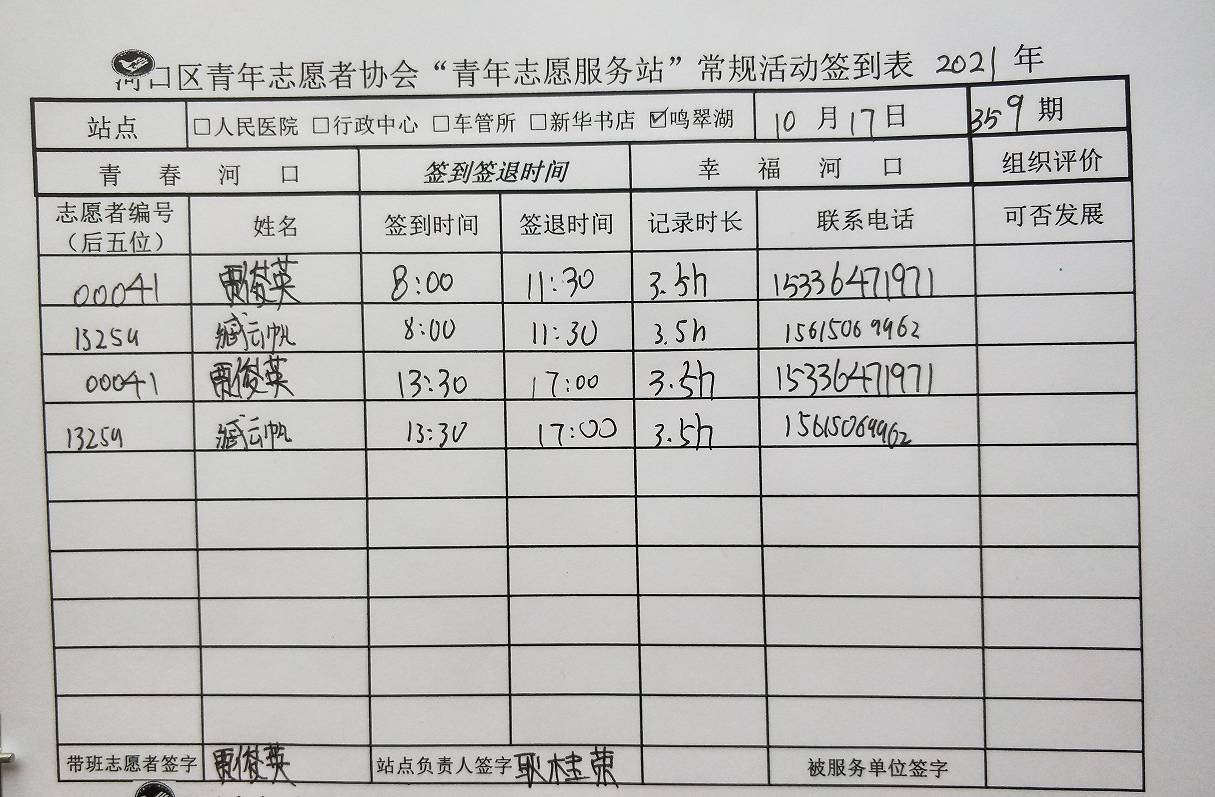 河口区青年志愿者协会“青年志愿服务站”常规活动签到表 2021 年
站点 □人民医院 □行政中心 □车管所 □新华书店 ☑鸣翠湖 10 月 17 日 359 期
青 春 河 口 签到签退时间 幸 福 河 口 组织评价
志愿者编号（后五位） 姓名 签到时间 签退时间 记录时长 联系电话 可否发展
00041 贾俊英 8:00 11:30 3.5h 15336471971
13259 臧云帆 8:00 11:30 3.5h 15615069962
00041 贾俊英 13:30 17:00 3.5h 15336471971
13259 臧云帆 13:30 17:00 3.5h 15615069962
带班志愿者签字 贾俊英 站点负责人签字 耿桂荣 被服务单位签字